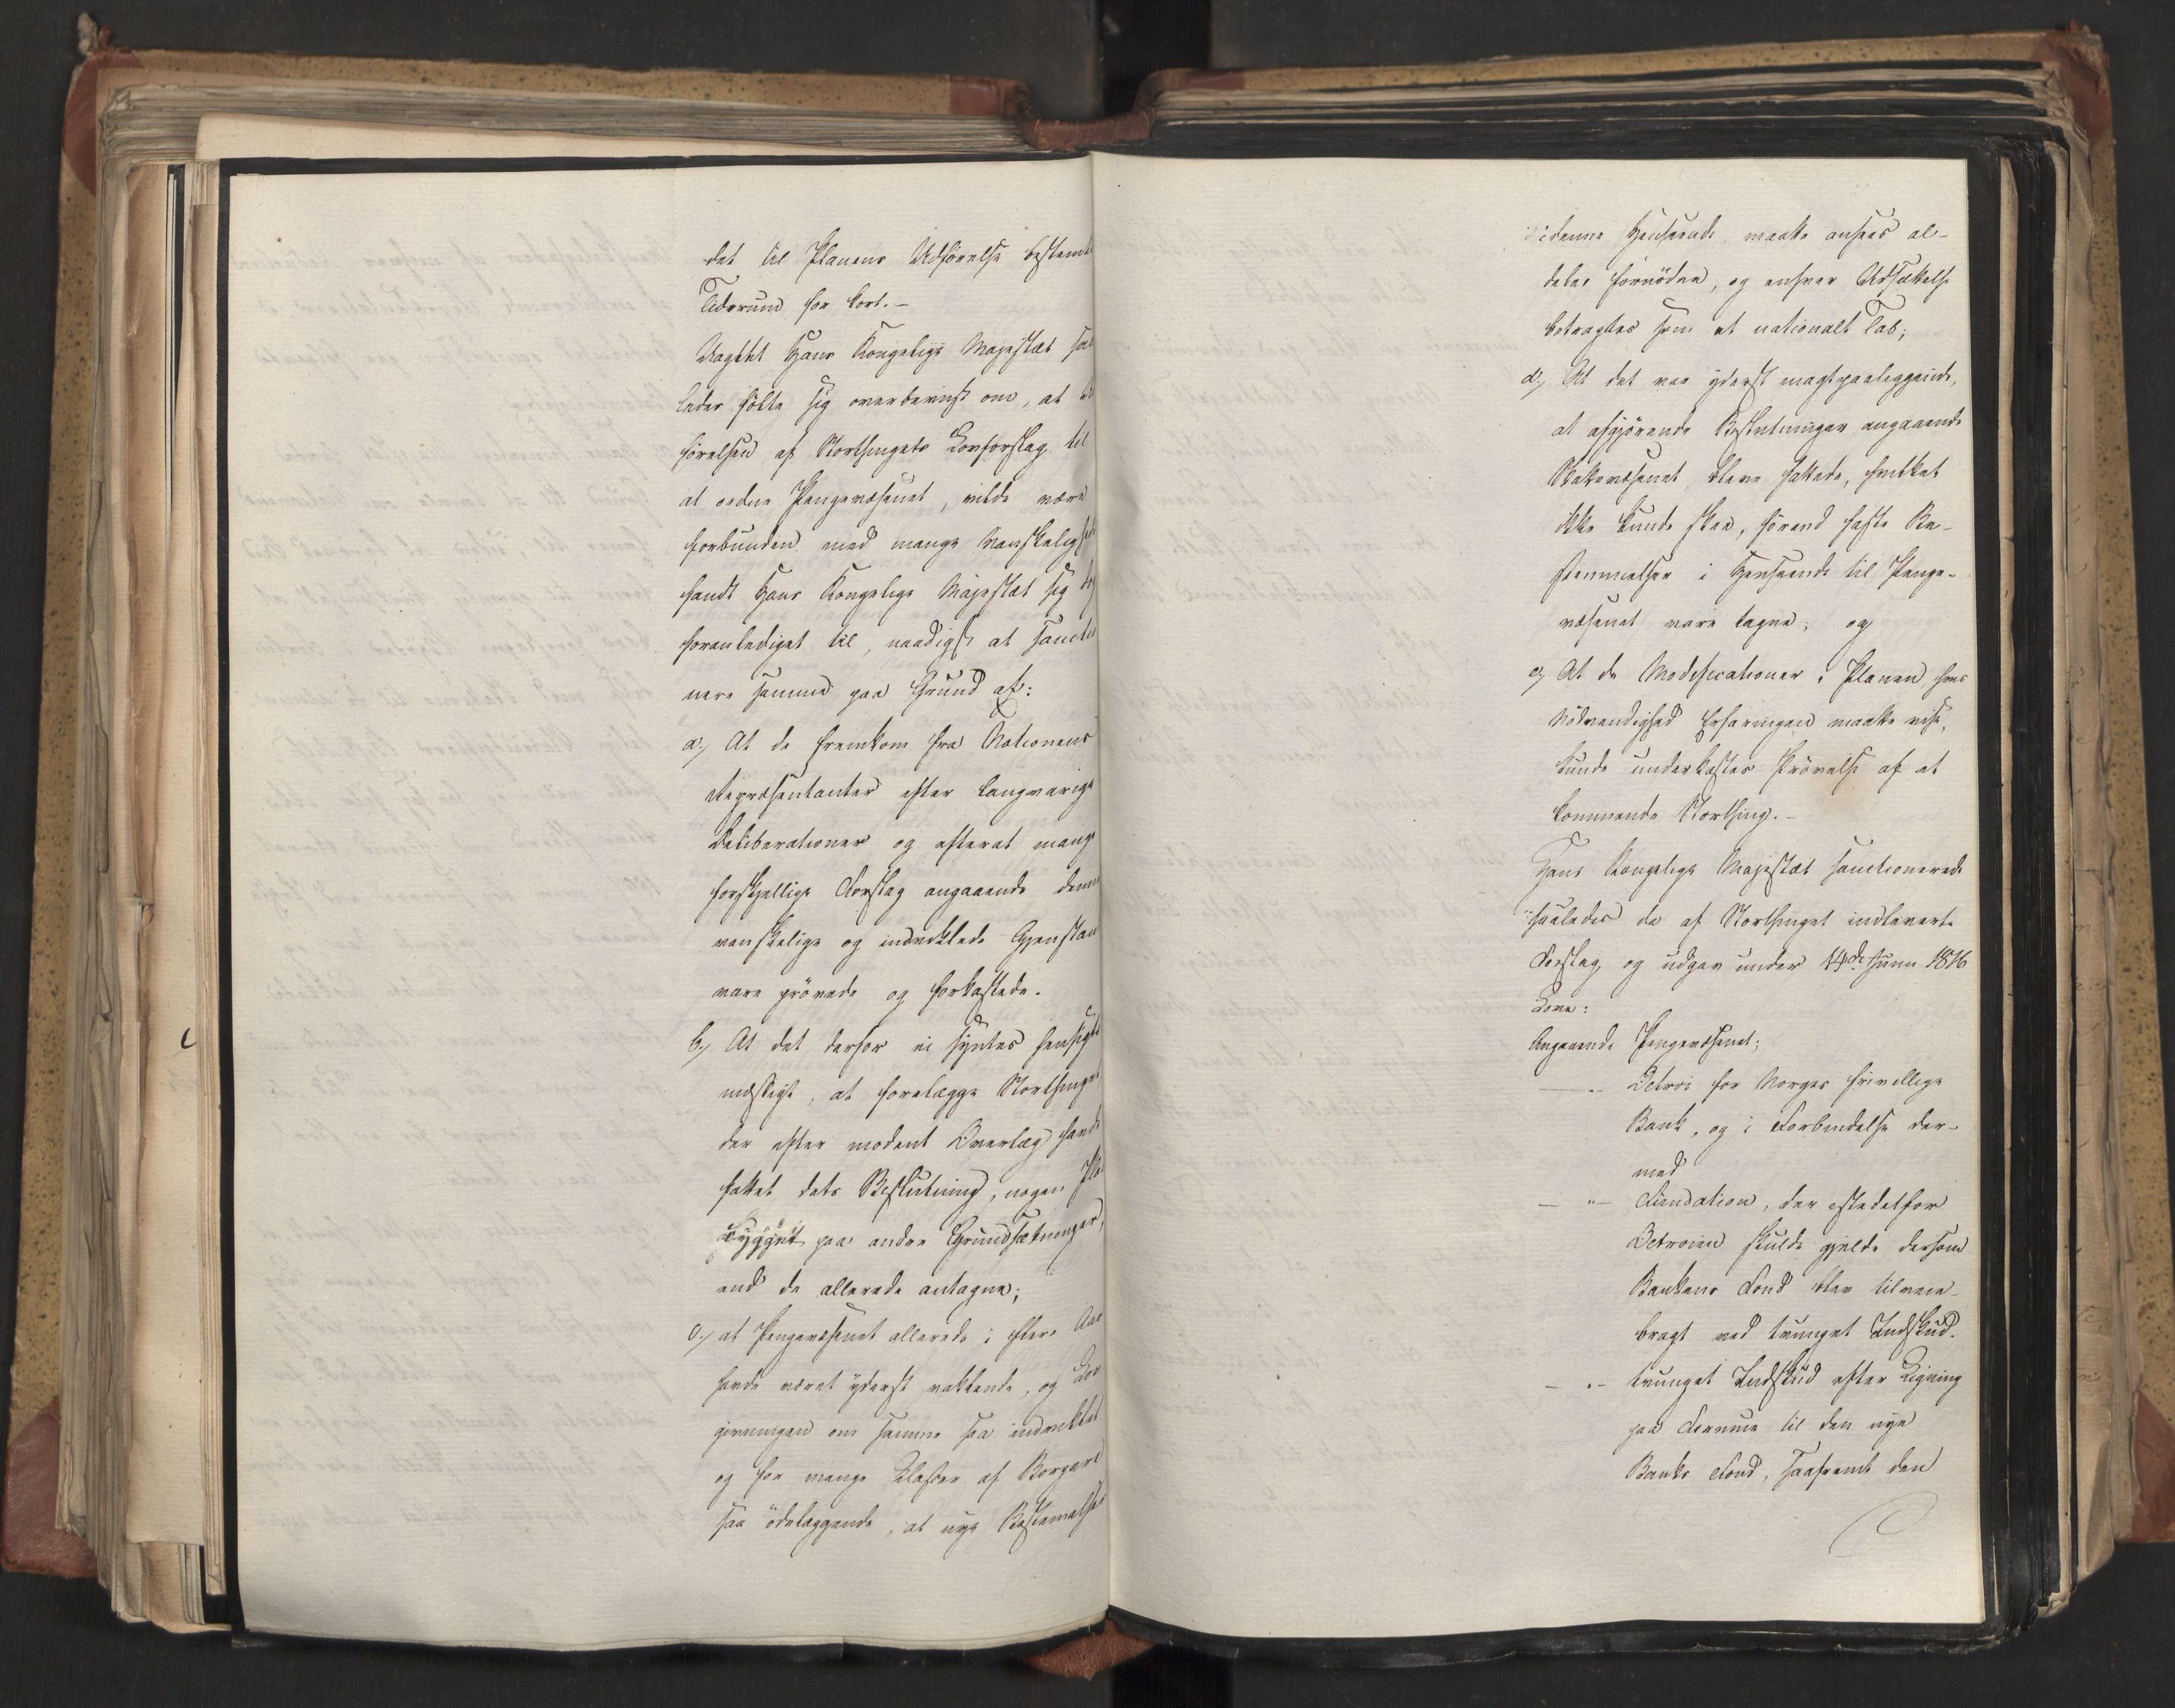 det til Planens Udførelse bestemte
Tidsrum for kort.-
Uagtet Hans Kongelige Majestæt saa
ledes følte sig overbeviist om, at Ud
førelsen af Storthingets Lovforslag til
at ordne Pengevæsenet, vilde være
forbunden med mange Vanskelighe
fandt Hans Kongelige Majestæt sig dog
foranlediget til, naadigst at sanctio
nere samme paa Grund af:
a.) At de fremkom fra Nationens
Repræsentanter efter langvarige
Deliberationer og efterat mange
forskjellige Forslag angaaende denne
vanskelige og indviklede Gjenstan
vare prövede og forkastede.
b.) At det derfor ei syntes hensigts
mæssigt, at forelægge Storthinget
der efter modent Overlæg havde
fattet dets Beslutning, nogen Pla
bygget paa andre Grundsætninger,
end de allerede antagne;
c.) at Pengevæsenet allerede i flere Aar
havde været yderst vaklende, og Lov
givningen om samme saa indviklet
og for mange Classer af Borgere
saa ödelæggende, at nye Bestemmelser
i denne Henseende maatte ansees al-
deles fornöden, og enhver Udsættelse
betragtes som et nationalt Tab;
d.) At det var yderst magtpaaliggende,
at afgjörende Beslutninger angaaende
Skattevæsenet bleve fattede, hvilket
ikke kunde skee, förend faste Be-
stemmelser i Henseende til Penge-
væsenet vare tagne; og
e.) At de Modificationer i Planen, hvis
Nödvendighed Erfaringen maatte vise,
kunde underkastes Prövelse af et
kommende Storthing.-
Hans Kongelige Majestæt sanctionerede
saaledes de af Storthinget indleverte
Forslag og udgav under 14de Juni 1816
Love:
Angaaende Pengevæsenet;
— " — Octroi for Norges frivillige
Bank, og i Forbindelse der-
med
— " — Fundation, der istedetfor
Octroien skulde gjelde dersom
Bankens Fond blev tilveie-
bragt ved tvunget Indskud.
— " — tvunget Indskud efter Ligning
paa Formue til den nye
Banks Fond, saafremt den